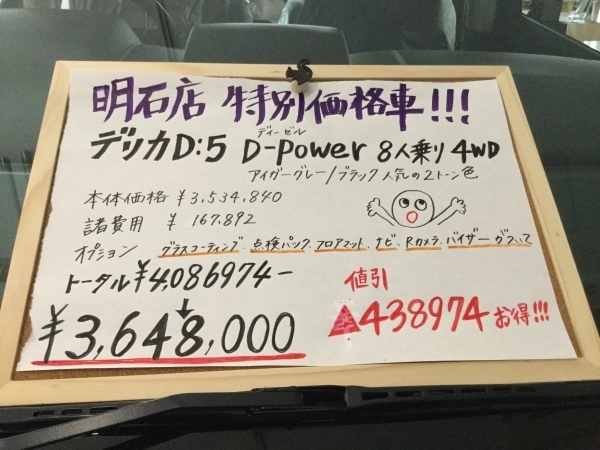 明石店 特別価格車!!!
ディーゼル
デリカD:5 D-Power 8人乗り 4WD
アイガーグレー/ブラック 人気の2トーン色
本体価格 ¥3,534,840
諸費用 ¥ 167,892
オプション グラスコーティング、点検パック、フロアマット、ナビ、Rカメラ、バイザーがついて
トータル¥4,086974-
値引
↓
▲438974お得!!!
¥3,648,000